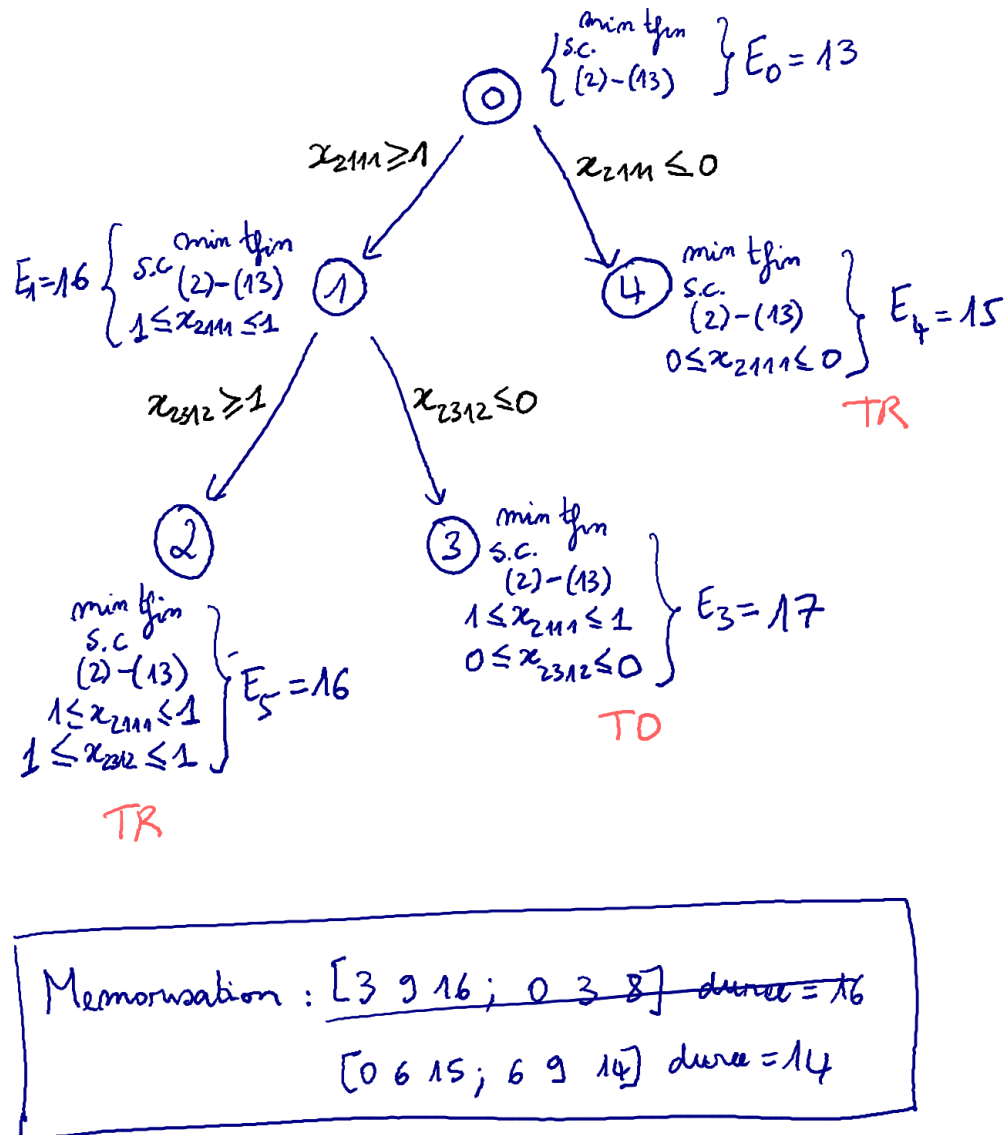 min tfin
s.c.
(2)-(13)
E₀ = 13
0
x₂₁₁₁ ≥ 1
x₂₁₁₁ ≤ 0
E₁=16
min tfin
s.c
(2)-(13)
1 ≤ x₂₁₁₁ ≤ 1
1
4
min tfin
s.c.
(2)-(13)
0 ≤ x₂₁₁₁ ≤ 0
E₄ = 15
TR
x₂₃₁₂ ≥ 1
x₂₃₁₂ ≤ 0
2
3
min tfin
s.c.
(2)-(13)
1 ≤ x₂₁₁₁ ≤ 1
0 ≤ x₂₃₁₂ ≤ 0
E₃ = 17
TO
min tfin
s.c
(2)-(13)
1 ≤ x₂₁₁₁ ≤ 1
1 ≤ x₂₃₁₂ ≤ 1
E₅ = 16
TR
Memorisation : [3 9 16 ; 0 3 8] duree = 16
[0 6 15 ; 6 9 14] duree = 14